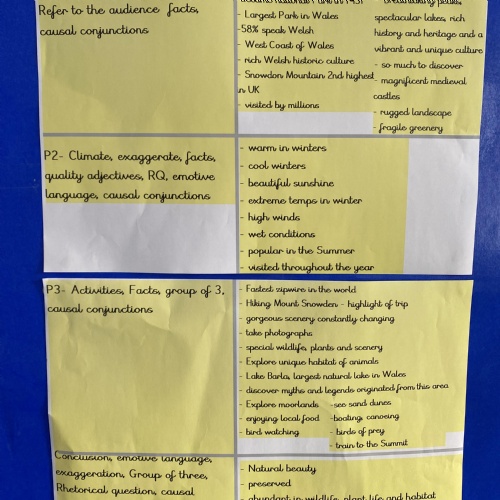 Refer to the audience facts,
causal conjunctions
- Largest Park in Wales
-58% speak Welsh
- West Coast of Wales
- rich Welsh historic culture
- Snowdon Mountain 2nd highest
in UK
- visited by millions
spectacular lakes, rich
history and heritage and a
vibrant and unique culture
- so much to discover
- magnificent medieval
castles
- rugged landscape
- fragile greenery
P2- Climate, exaggerate, facts,
quality adjectives, RQ, emotive
language, causal conjunctions
- warm in winters
- cool winters
- beautiful sunshine
- extreme temps in winter
- high winds
- wet conditions
- popular in the Summer
- visited throughout the year
P3- Activities, Facts, group of 3,
causal conjunctions
- Fastest zipwire in the world
- Hiking Mount Snowden - highlight of trip
- gorgeous scenery constantly changing
- take photographs
- special wildlife, plants and scenery
- Explore unique habitat of animals
- Lake Barla, largest natural lake in Wales
- discover myths and legends originated from this area
- Explore moorlands
- enjoying local food
- bird watching
-see sand dunes
-boating, canoeing
- birds of prey
- train to the Summit
Conclusion, emotive language,
exaggeration, Group of three,
Rhetorical question, causal
- Natural beauty
- preserved
- abundant in wildlife, plant life and habitat